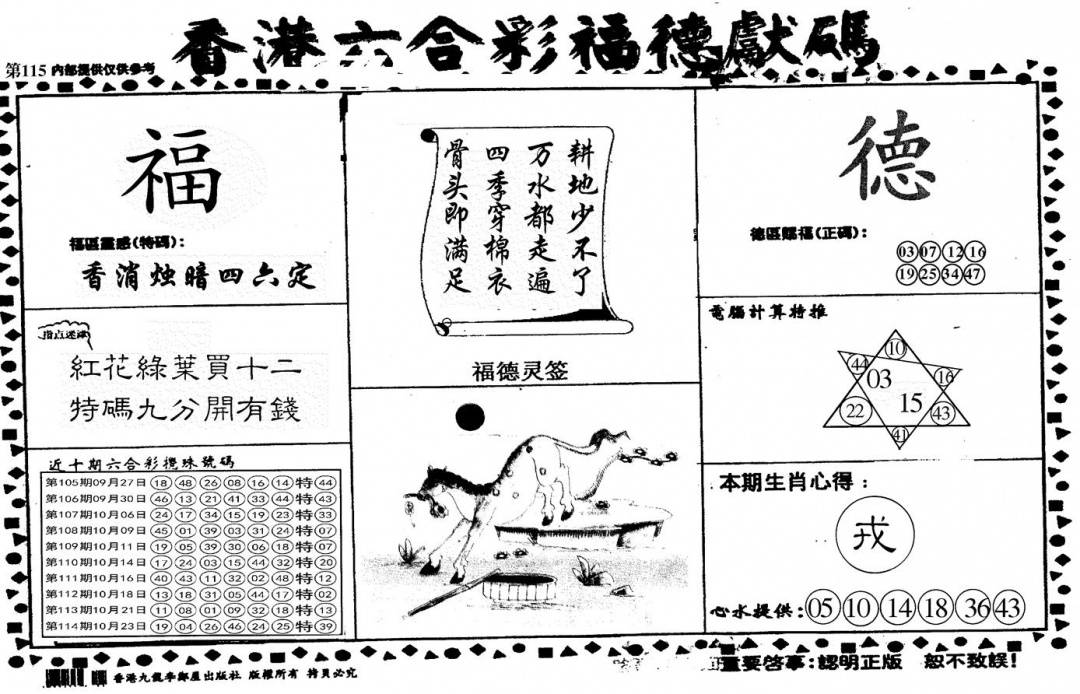 香港六合彩福德獻碼
第115 内部提供仅供参考
福
福區靈感(特碼):
香消烛暗四六定
指点迷津
紅花綠葉買十二
特碼九分開有錢
近十期六合彩攪珠號碼
第105期09月27日 18 48 26 08 16 14 特 44
第106期09月30日 46 13 21 41 33 44 特 43
第107期10月06日 24 17 34 15 19 23 特 33
第108期10月09日 45 01 39 03 31 24 特 07
第109期10月11日 19 05 39 30 06 18 特 07
第110期10月14日 17 24 03 15 44 32 特 20
第111期10月16日 40 43 11 32 02 48 特 12
第112期10月18日 13 18 31 05 44 17 特 02
第113期10月21日 11 08 01 09 32 18 特 13
第114期10月23日 19 04 26 46 24 25 特 39
耕地少不了
万水都走遍
四季穿棉衣
骨头即满足
福德灵签
德
德區賜福(正碼):
03 07 12 16
19 25 34 47
電腦計算特推
10
44 03 16
22 15 43
41
本期生肖心得:
戎
心水提供: 05 10 14 18 36 43
香港九龍李鄭屋出版社 版權所有 拷貝必究
重要啓事:認明正版 恕不致誤!